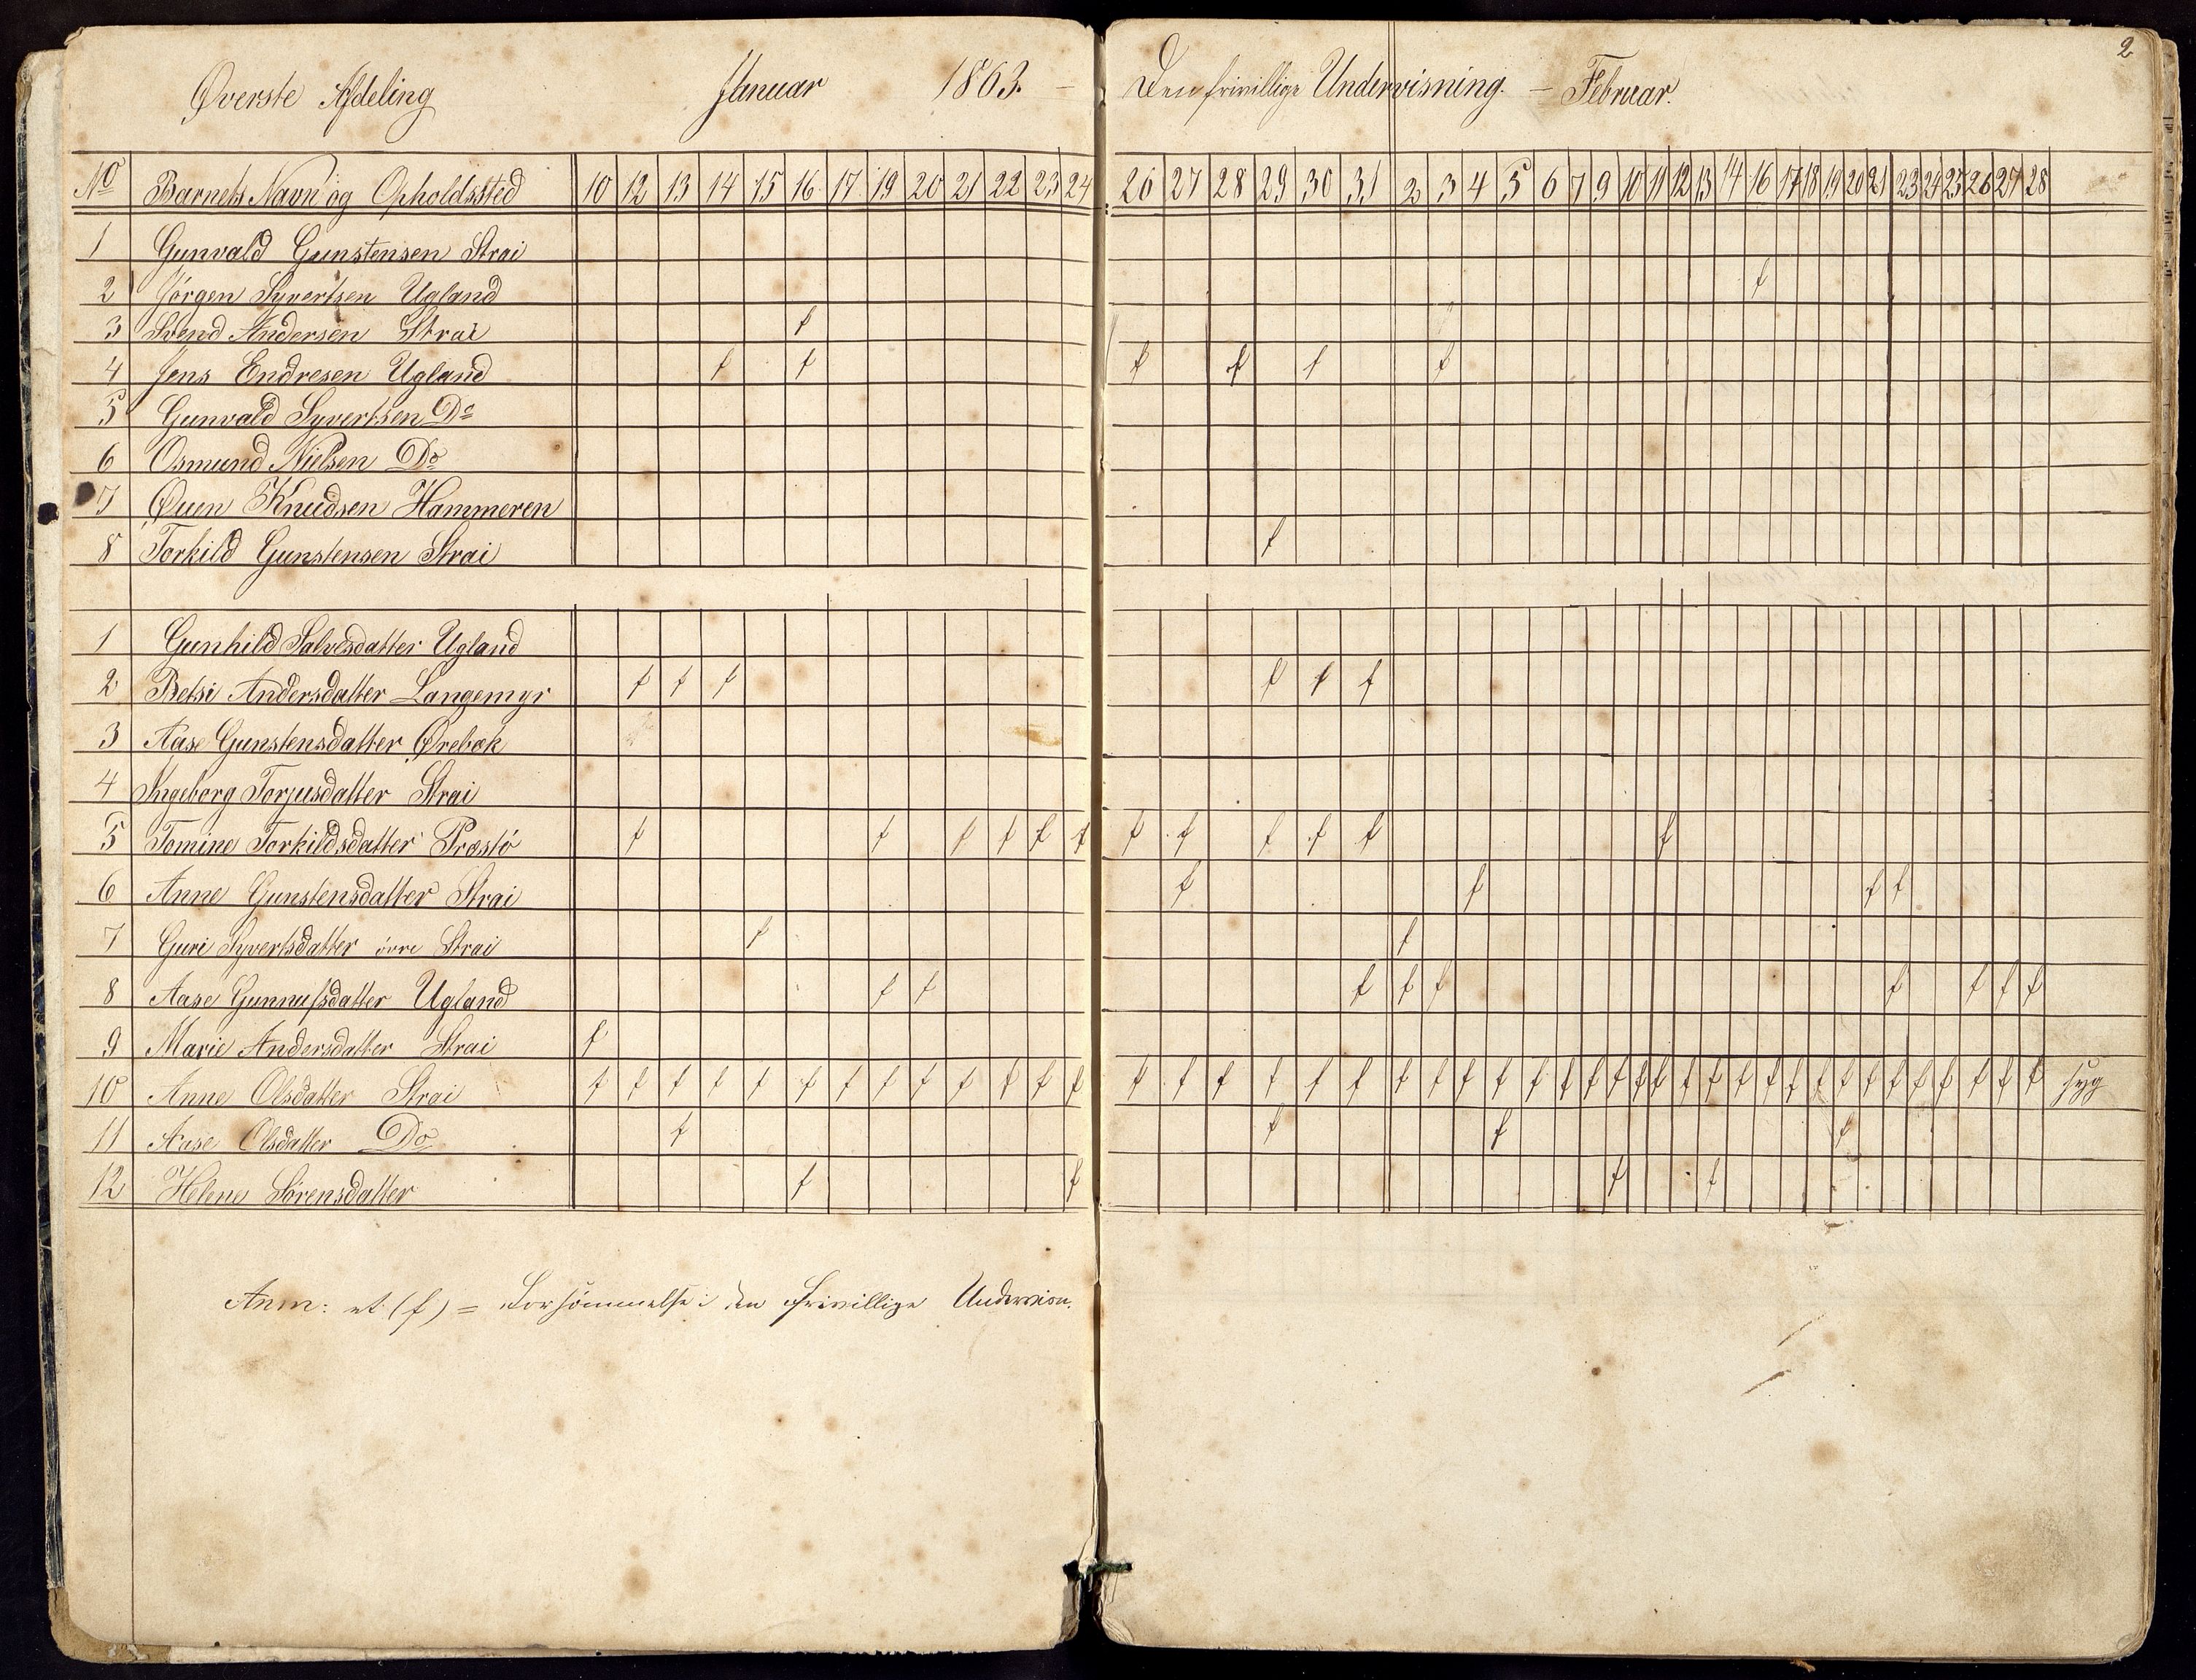 2
Øverste Afdeling Januar 1863. – Den frivillige Undervisning. – Februar.
No Barnets Navn og Opholdssted 10 12 13 14 15 16 17 19 20 21 22 23 24 26 27 28 29 30 31 2 3 4 5 6 7 9 10 11 12 13 14 16 17 18 19 20 21 23 24 25 26 27 28
1 Gunvald Gunstensen Strai
2 Jörgen Syvertsen Ugland f
3 Svend Andersen Strai f
4 Jens Endresen Ugland f f f f f f
5 Gunvald Syvertsen Do
6 Osmund Nielsen Do
7 Øuen Knudsen Hammeren
8 Torkild Gunstensen Strai f
1 Gunhild Salvesdatter Ugland
2 Betsi Andersdatter Langemyr f f f f f f
3 Aase Gunstensdatter Örebæk
4 Ingeborg Torjusdatter Strai
5 Tomine Torkildsdatter Præstö f f f f f f f f f f f f
6 Anne Gunstensdatter Strai f f f f
7 Guri Syvertsdatter övre Strai f f
8 Aase Gunnufsdatter Ugland f f f f f f f f f
9 Marie Andersdatter Strai f
10 Anne Olsdatter Strai f f f f f f f f f f f f f f f f f f f f f f f f f f f f f f f f f f f f f f f f f f f syg
11 Aase Olsdatter Do f f f f
12 Helene Sörensdatter f f f f
Anm: et (f) = Forsömmelse i den frivillige Undervisn.